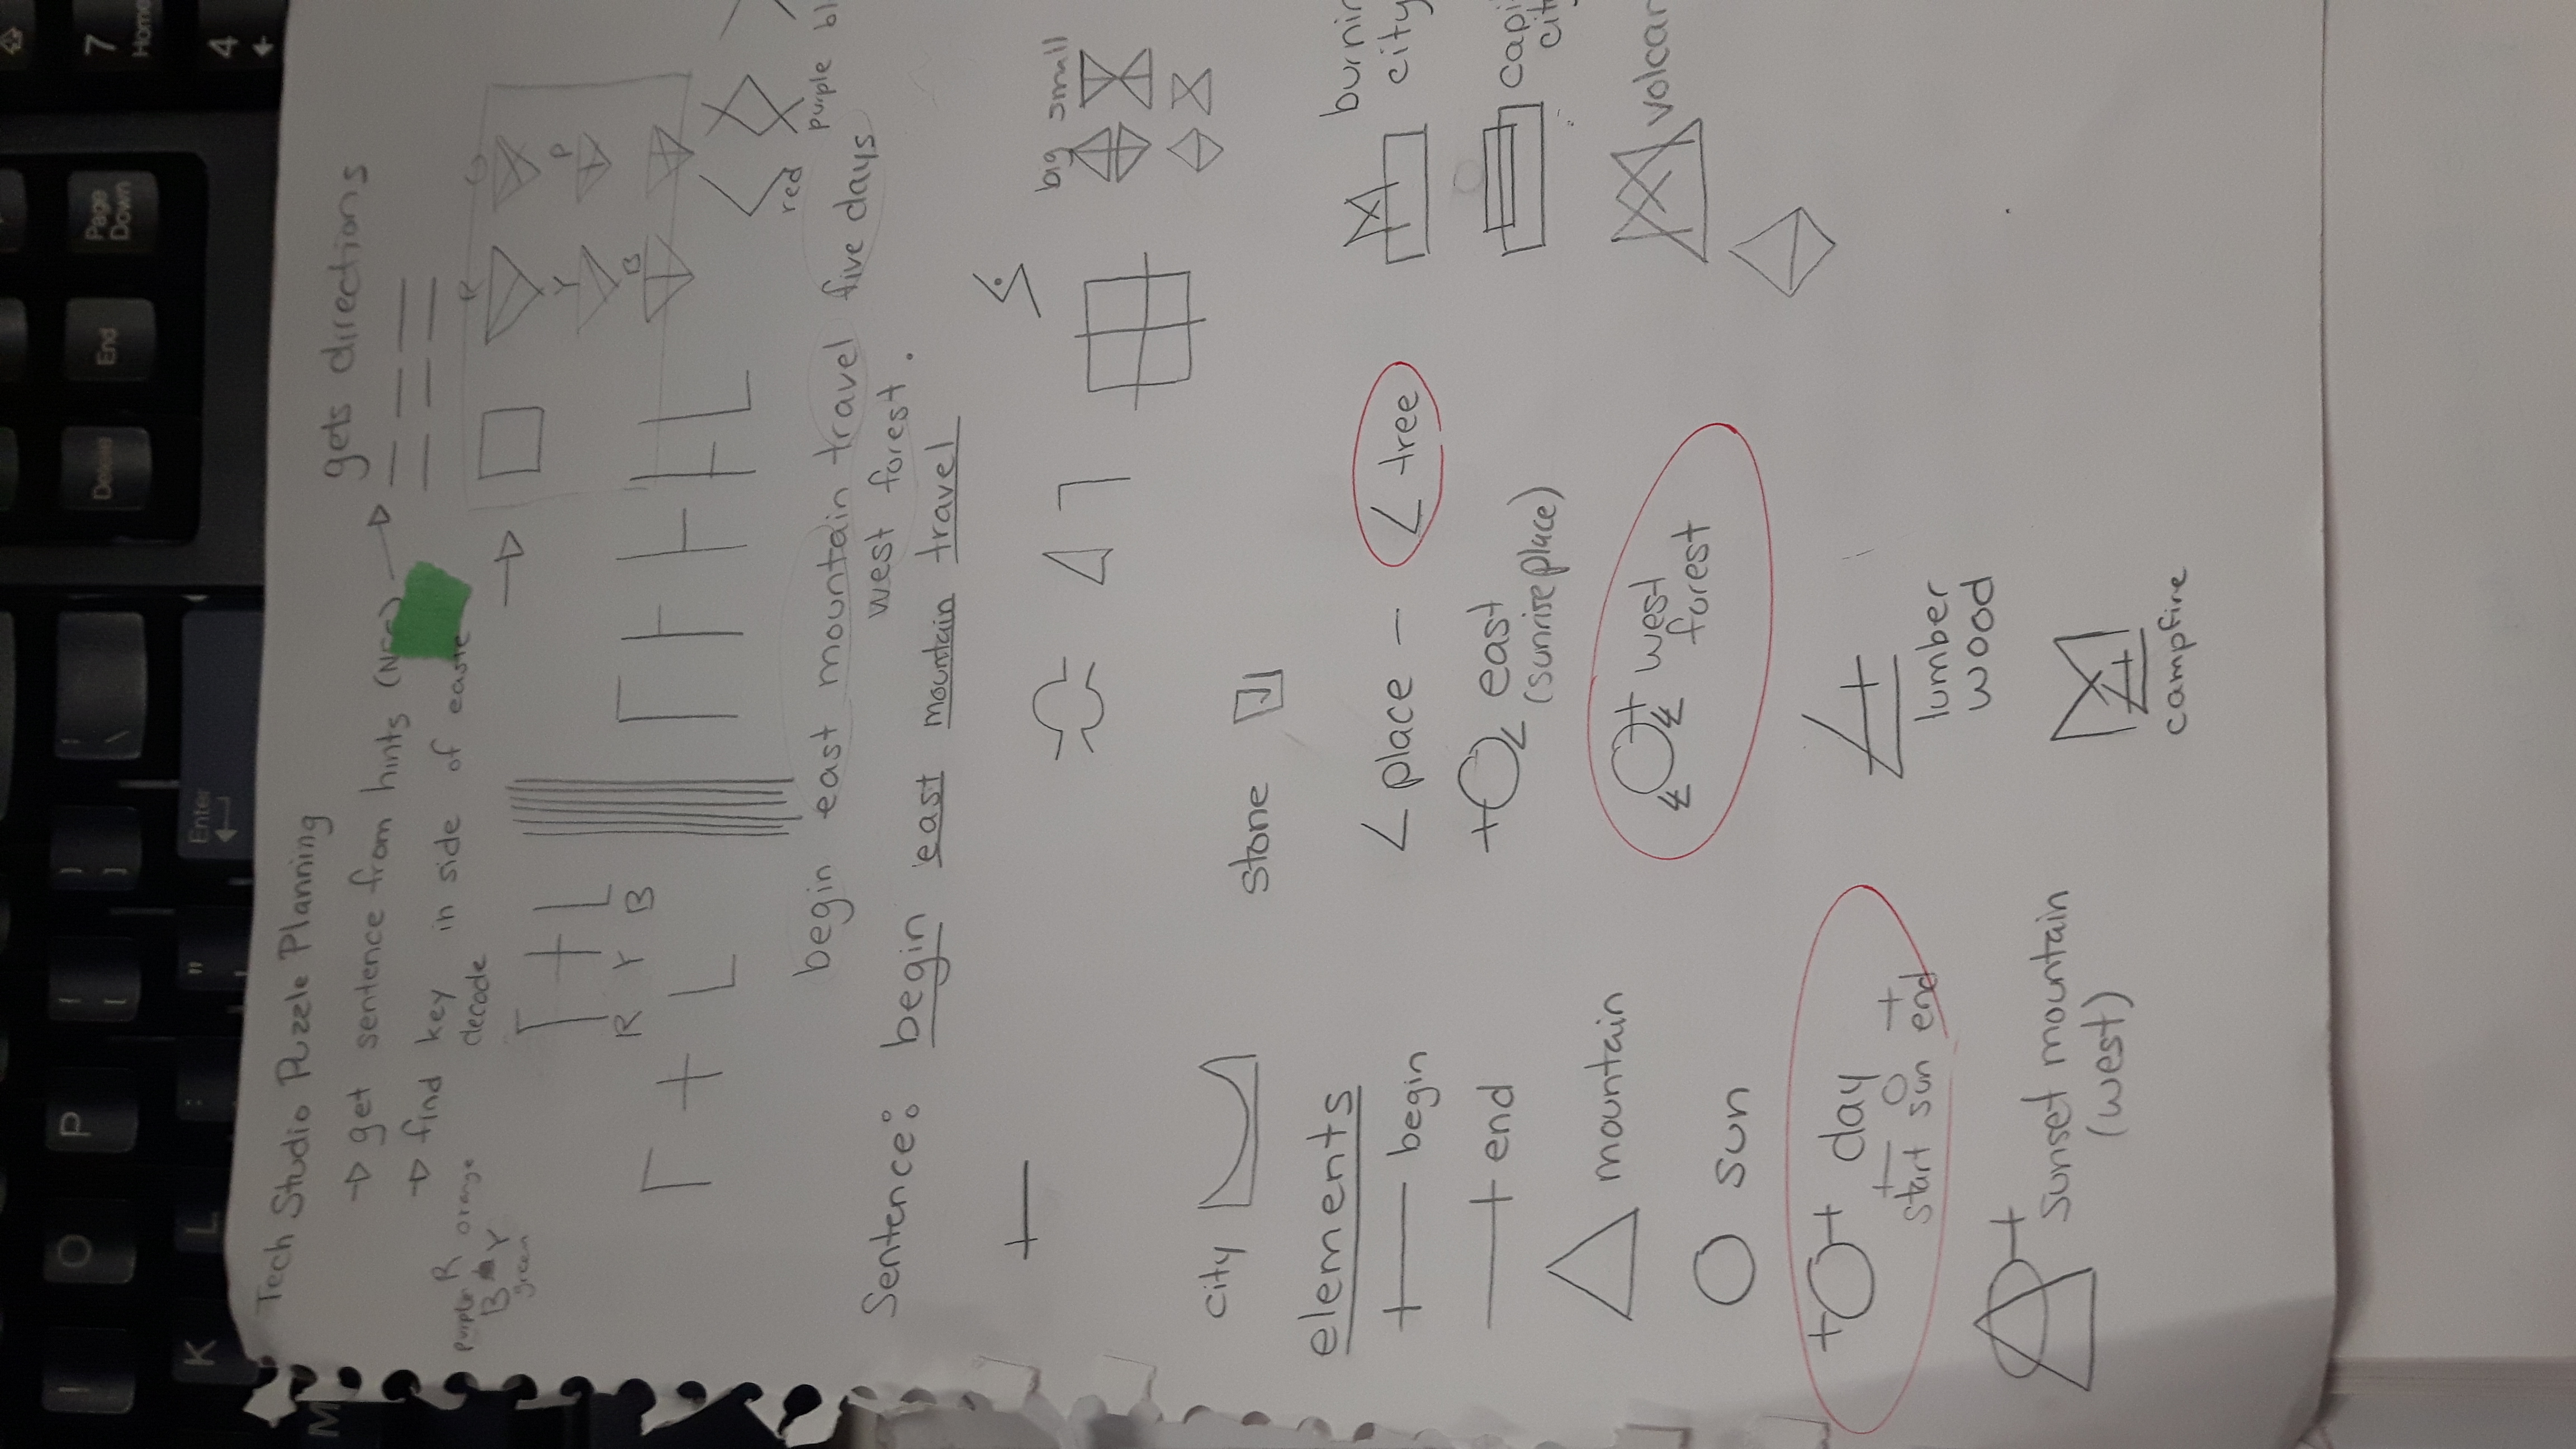 I O P { [ } ] | \ Delete End Page Down 7 Home
K L : " Enter 4
M
Tech Studio Puzzle Planning
gets directions
→ get sentence from hints
→ find key in side of
decode
R
purple orange
B Y
green
R Y B
R
Y P
B
red purple
begin east mountain travel five days
west forest.
Sentence: begin east mountain travel
big small
city
stone
elements
begin
end
mountain
sun
day
start sun end
sunset mountain
(west)
place - tree
east
(sunrise place)
west
forest
lumber
wood
campfire
city